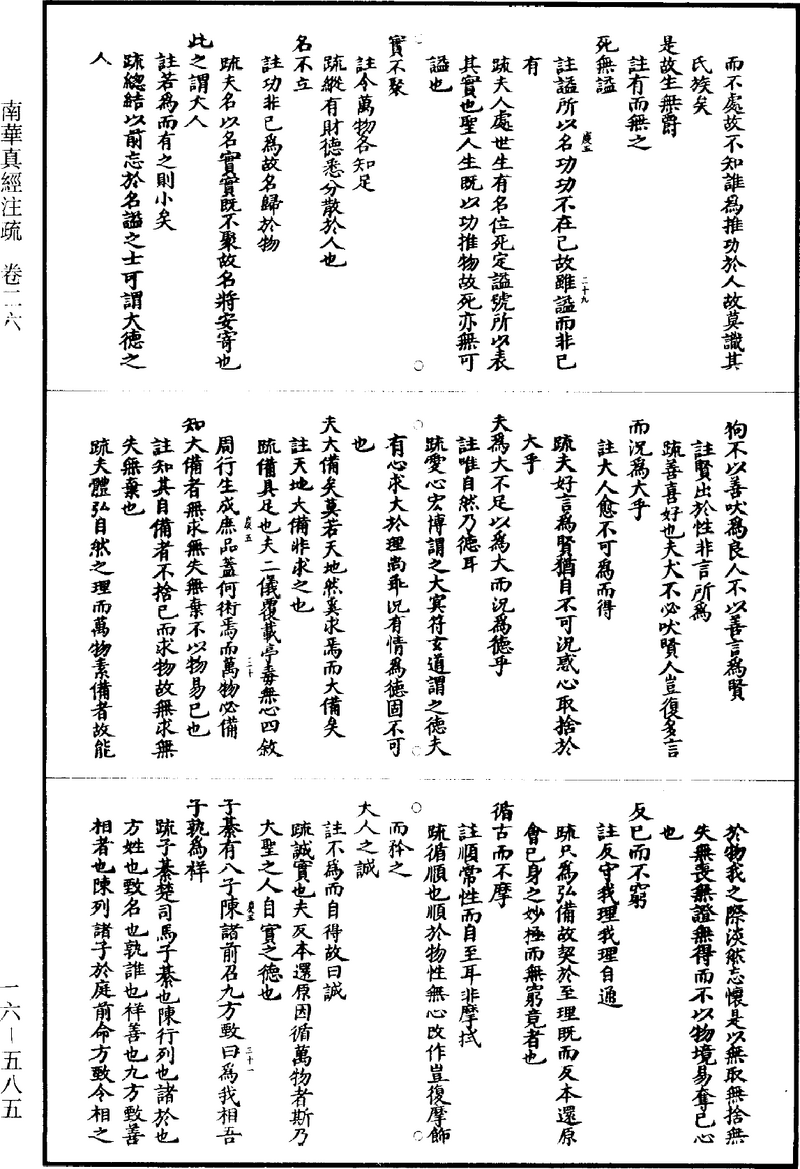 南華真經注疏　卷二六
而不處故不知誰爲推功於人故莫識其
氏族矣
是故生無爵
註有而無之
死無謚
註謚所以名功功不在己故雖謚而非己
有
疏夫人處世生有名位死定謚號所以表
其實也聖人生既以功推物故死亦無可
謚也
實不聚
註令萬物各知足
疏縱有財德悉分散於人也
名不立
註功非己爲故名歸於物
疏夫名以名實實既不聚故名將安寄也
此之謂大人
註若爲而有之則小矣
疏總結以前忘於名謚之士可謂大德之
人
狗不以善吠爲良人不以善言爲賢
註賢出於性非言所爲
疏善喜好也夫犬不必吠賢人豈復多言
而況爲大乎
註大人愈不可爲而得
疏夫好言爲賢猶自不可況惑心取捨於
大乎
夫爲大不足以爲大而況爲德乎
註唯自然乃德耳
疏愛心宏博謂之大冥符玄道謂之德夫
有心求大於理尚乖況有情爲德固不可
也
夫大備矣莫若天地然奚求焉而大備矣
註天地大備非求之也
疏備具足也夫二儀覆載亭毒無心四敘
周行生成庶品蓋何術焉而萬物必備
知大備者無求無失無棄不以物易己也
註知其自備者不捨己而求物故無求無
失無棄也
疏夫體弘自然之理而萬物素備者故能
於物我之際淡然忘懷是以無取無捨無
失無喪無證無得而不以物境易奪己心
也
反己而不窮
註反守我理我理自通
疏只爲弘備故契於至理既而反本還原
會己身之妙極而無窮竟者也
循古而不摩
註順常性而自至耳非摩拭
疏循順也順於物性無心改作豈復摩飾
而矜之
大人之誠
註不爲而自得故曰誠
疏誠實也夫反本還原因循萬物者斯乃
大聖之人自實之德也
子綦有八子陳諸前召九方歅曰爲我相吾
子孰爲祥
疏子綦楚司馬子綦也陳行列也諸於也
方姓也歅名也孰誰也祥善也九方歅善
相者也陳列諸子於庭前命方歅令相之
一六－五八五